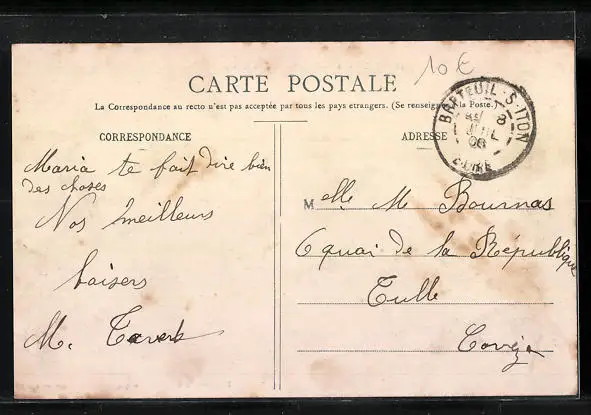 10 €
CARTE POSTALE
La Correspondance au recto n'est pas acceptée par tous les pays etrangers. (Se renseigner à la Poste.)
BRETEUIL-S-ITON
8
JUIL
08
EURE
CORRESPONDANCE
Maria te fait dire bien
des choses
Nos meilleurs
baisers
M.
ADRESSE
Melle M Bournas
6 quai de la République
Tulle
Corrèze